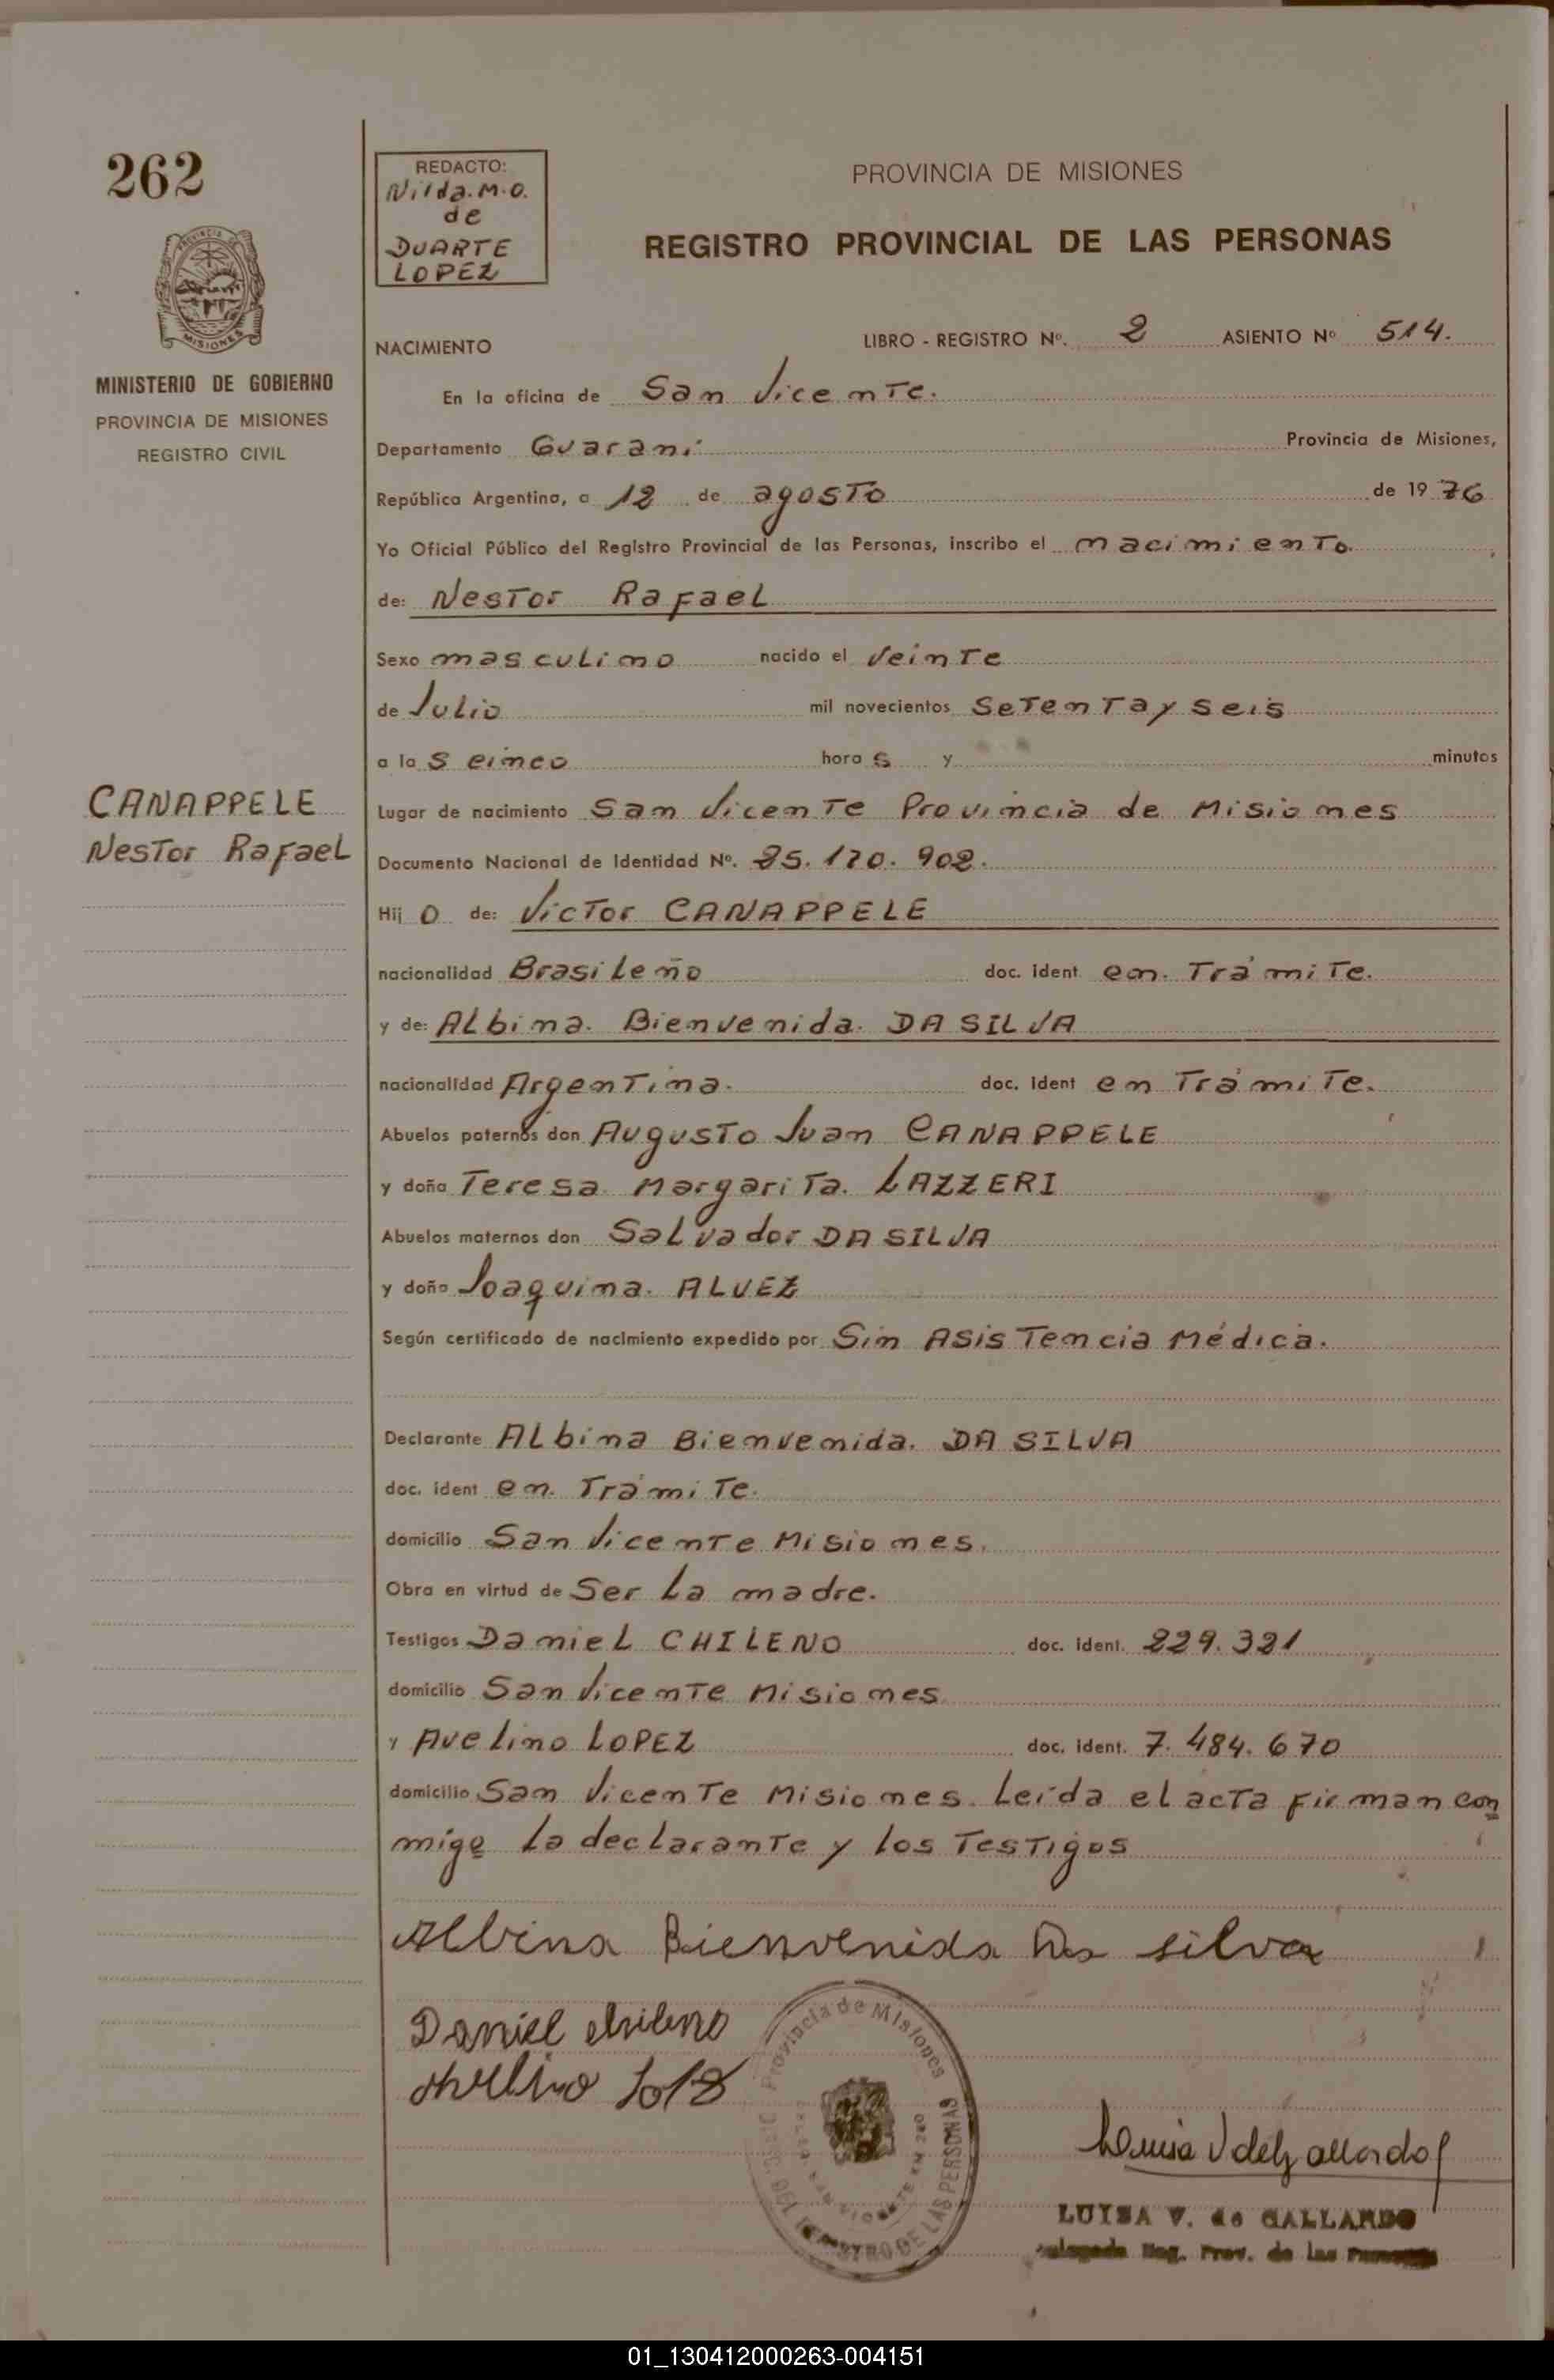 262
REDACTO:
Nilda. M. O.
de
DUARTE
LOPEZ
PROVINCIA DE MISIONES
REGISTRO PROVINCIAL DE LAS PERSONAS
PROVINCIA DE
MISIONES
MINISTERIO DE GOBIERNO
PROVINCIA DE MISIONES
REGISTRO CIVIL
NACIMIENTO
LIBRO - REGISTRO Nº. 2 ASIENTO Nº 514.
En la oficina de San Vicente.
Departamento Guaraní Provincia de Misiones,
República Argentina, a 12 de agosto de 1976
Yo Oficial Público del Registro Provincial de las Personas, inscribo el nacimiento
de: Nestor Rafael
Sexo masculino nacido el Veinte
de Julio mil novecientos Setenta y seis
a las cinco horas y minutos
CANAPPELE
Nestor Rafael
Lugar de nacimiento San Vicente Provincia de Misiones
Documento Nacional de Identidad Nº. 25.120.902.
Hijo de: Victor CANAPPELE
nacionalidad Brasileño doc. ident en. Trámite.
y de: Albina. Bienvenida. DA SILVA
nacionalidad Argentina. doc. ident en Trámite.
Abuelos paternos don Augusto Juan CANAPPELE
y doña Teresa Margarita. LAZZERI
Abuelos maternos don Salvador DA SILVA
y doña Joaquina. ALVEZ
Según certificado de nacimiento expedido por Sin Asistencia Médica.
Declarante Albina Bienvenida. DA SILVA
doc. ident en. Trámite.
domicilio San Vicente Misiones.
Obra en virtud de Ser La madre.
Testigos Daniel CHILENO doc. ident. 229.321
domicilio San Vicente Misiones
y Avelino LOPEZ doc. ident. 7.484.670
domicilio San Vicente Misiones. Leída el acta firman con
migo la declarante y los Testigos
Albina Bienvenida Da silva
Daniel chileno
Provincia de Misiones
REGISTRO DE LAS PERSONAS
LUISA V. de GALLARDO
Reg. Prov. de las
01_130412000263-004151